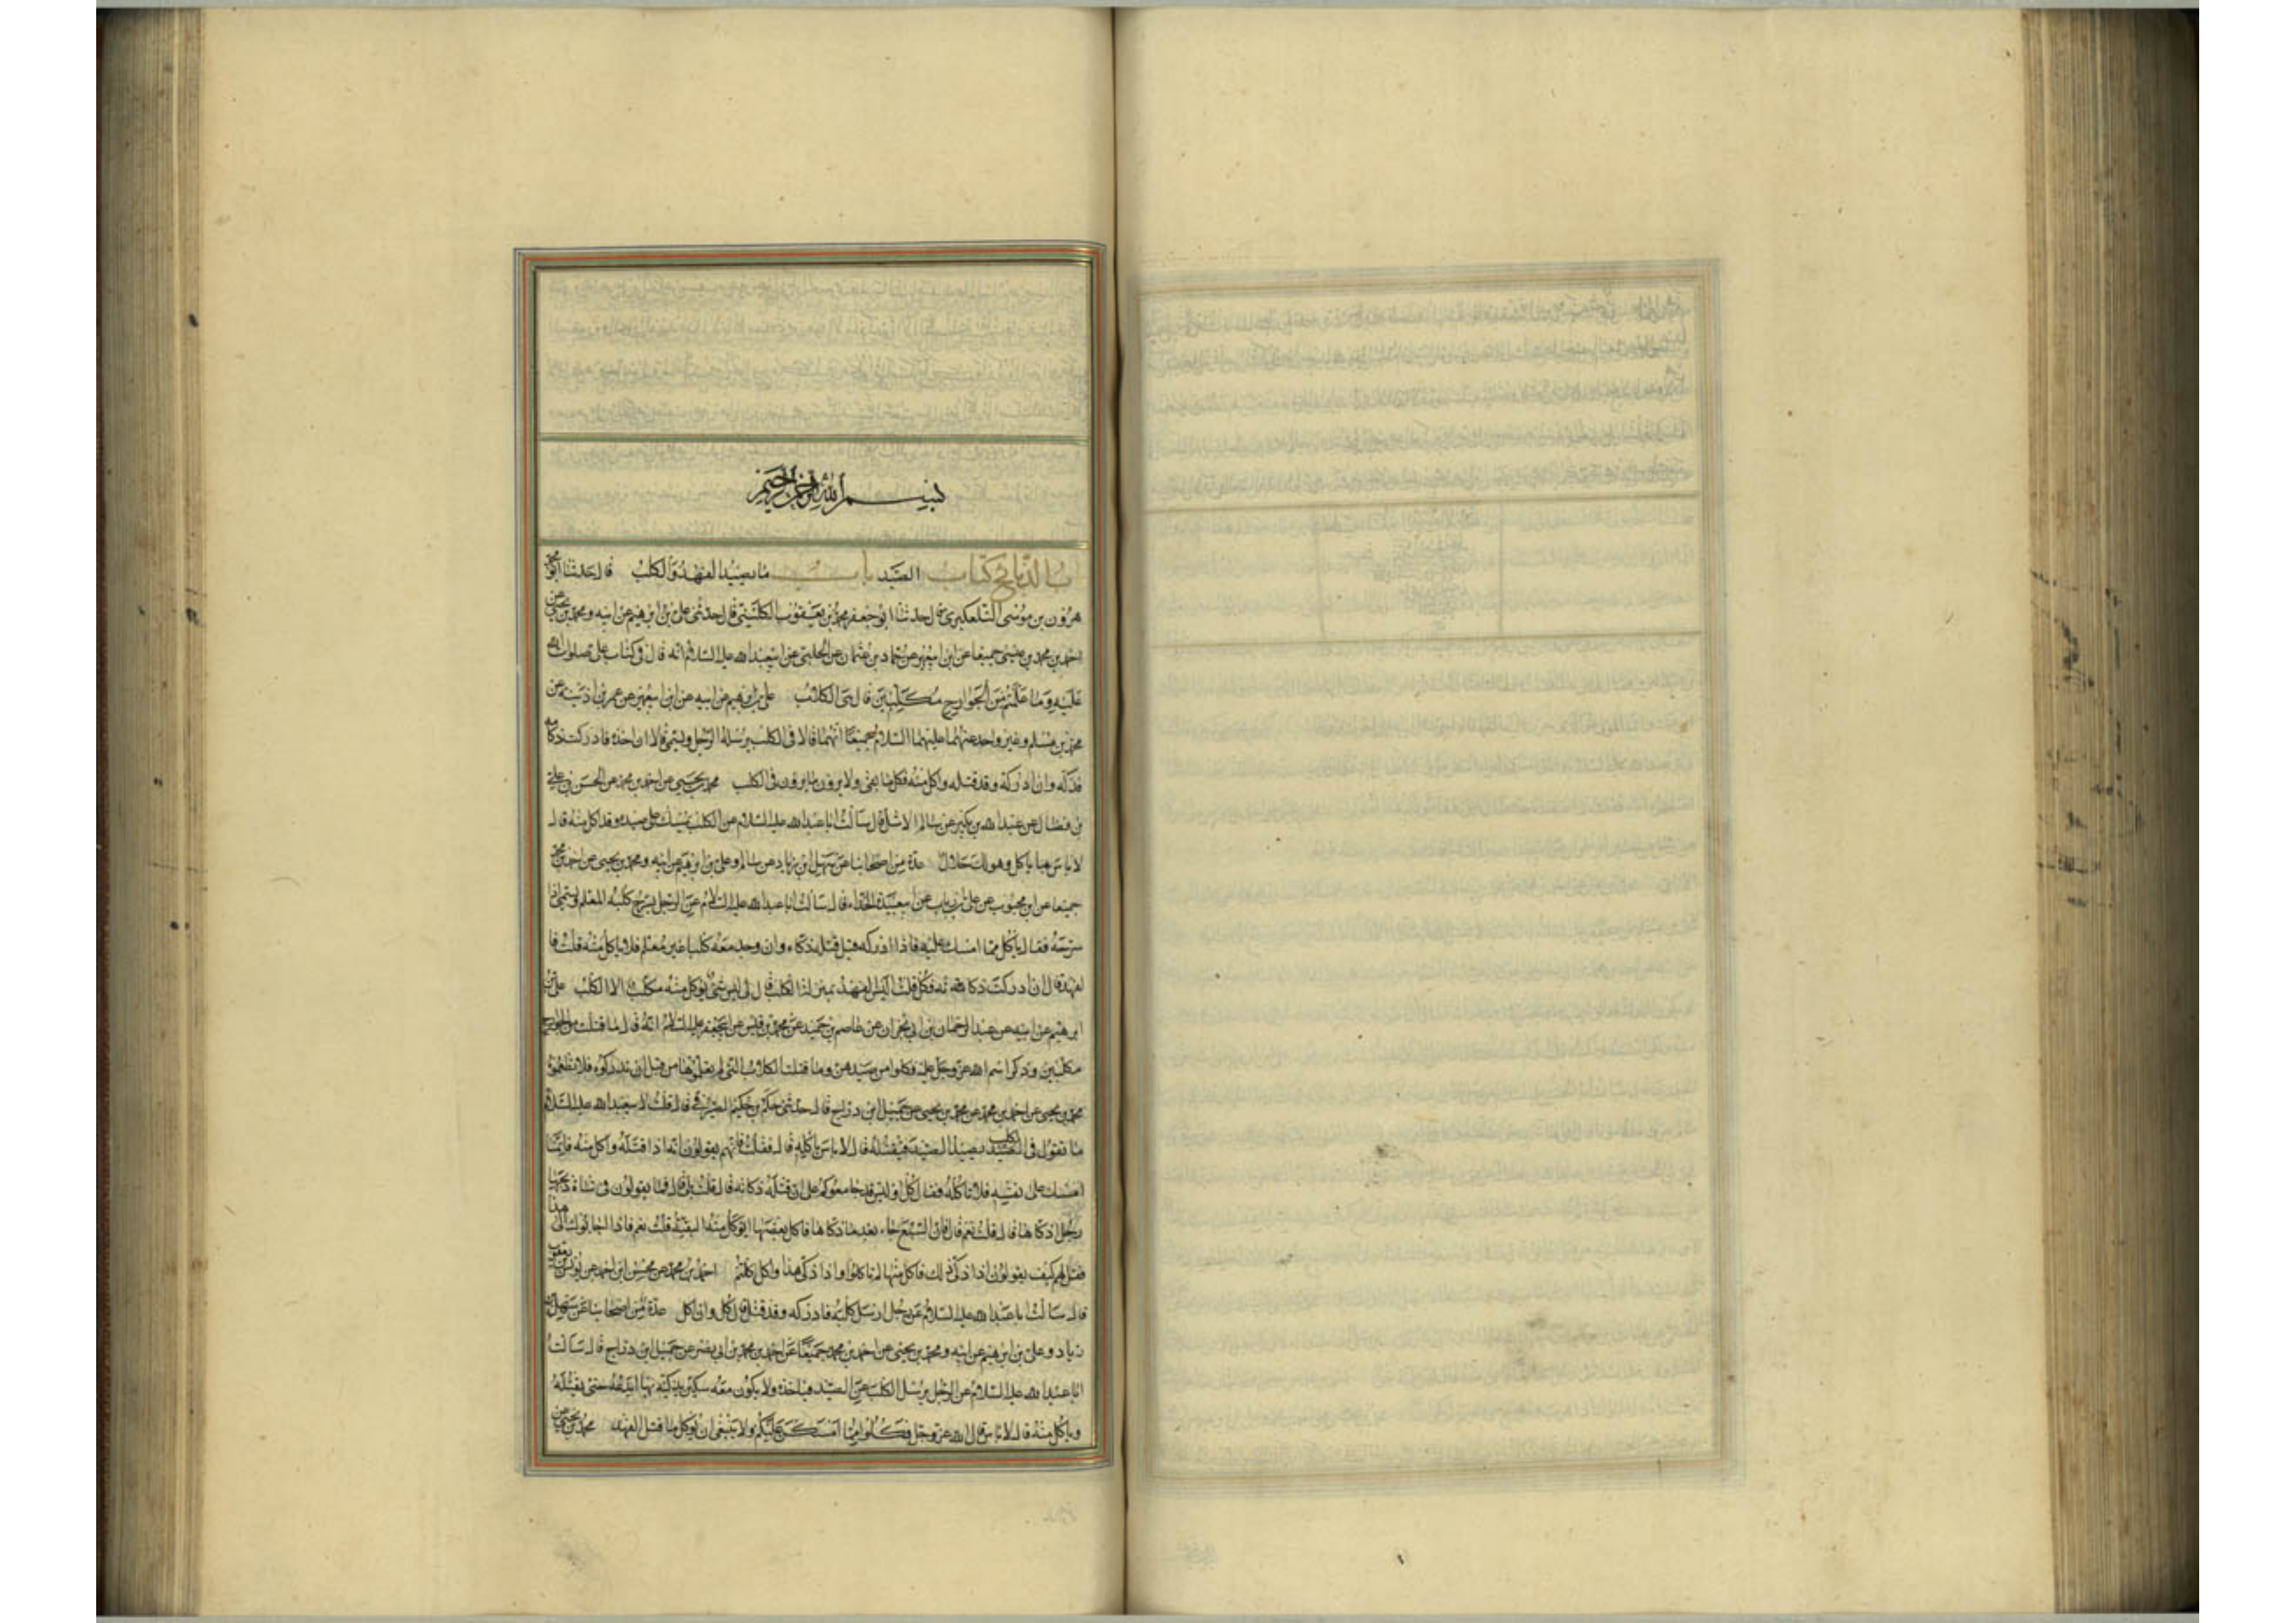 بسم الله الرحمن الرحيم
كتاب الصيد باب ما يصيد الفهد والكلب قال حدثنا ابو محمد
هرون بن موسى التلعكبري قال حدثنا ابو جعفر محمد بن يعقوب الكليني قال حدثني علي بن ابرهيم عن ابيه ومحمد بن يحيى عن
احمد بن محمد بن عيسى جميعا عن ابن ابي عمير عن حماد بن عثمان عن الحلبي عن ابي عبد الله عليه السلام انه قال في كتاب علي صلوات الله
عليه وما علمتم من الجوارح مكلبين قال هي الكلاب علي بن ابرهيم عن ابيه عن ابن ابي عمير عن عمر بن اذينه عن
محمد بن مسلم وغير واحد عنهما عليهما السلام جميعا انهما قالا في الكلب يرسله الرجل ويسمي قالا ان اخذه فادركت ذكاته
فذكه وان ادركه وقد قتله واكل منه فكل ما بقي ولا يرون ما يرون في الكلب محمد بن يحيى عن احمد بن محمد عن الحسن بن علي
بن فضال عن عبد الله بن بكير عن سالم الاشل قال سالت ابا عبد الله عليه السلام عن الكلب يمسك على صيده وقد اكل منه قال
لا باس بما ياكل وهو لك حلال عدة من اصحابنا عن سهل ابن زياد عن سالم وعلي بن ابرهيم عن ابيه ومحمد بن يحيى عن احمد بن محمد
جميعا عن ابن محبوب عن علي بن رياب عن ابي عبيدة الحذاء قال سالت ابا عبد الله عليه السلام عن الرجل يسرح كلبه المعلم ويسمي اذا
سرحه فقال ياكل مما امسك عليه فاذا ادركه قبل قتله ذكاه وان وجد معه كلبا غير معلم فلا ياكل منه قلت فا
لفهد قال ان ادركت ذكاته فكل قلت اليس الفهد بمنزلة الكلب قال لي ليس شئ يوكل منه مكلب الا الكلب علي بن
ابرهيم عن ابيه عن عبد الرحمان بن ابي نجران عن عاصم بن حميد عن محمد بن قيس عن ابي جعفر عليه السلام انه قال ما قتلت من الجوارح
مكلبين وذكر اسم الله عز وجل عليه فكلوا من صيدهن وما قتلت الكلاب التي لم يعلموها من قبل ان تدركوه فلا تطعموه
محمد بن يحيى عن احمد بن محمد عن محمد بن يحيى عن جميل ابن دراج قال حدثني حكم بن حكيم الصيرفي قال قلت لابي عبد الله عليه السلام
ما تقول في الكلب يصيد الصيد فيقتله قال لا باس باكله قال فقلت فانهم يقولون انه اذا قتله واكل منه فانما
امسك على نفسه فلا تاكله فقال كل اوليس قد جامعوكم على ان قتله ذكاته قال قلت بلى قال فما يقولون في شاة ذبحها
رجل اذكاها قال قلت نعم قال فان السبع جاء بعد ما ذكاها فاكل بعضها ايوكل منه البقية قلت نعم فاذا اجابوك الى هذا
فقل لهم كيف يقولون اذا ذكى ذلك فاكل منها لم تاكلوا واذا ذكى هذا واكل اكلتم احمد بن محمد عن محسن ابن احمد عن يونس بن يعقوب
قال سالت ابا عبد الله عليه السلام عن رجل ارسل كلبه فادركه وقد قتل قال كل وان اكل عدة من اصحابنا عن سهل بن
زياد وعلي بن ابرهيم عن ابيه ومحمد بن يحيى عن احمد بن محمد جميعا عن احمد بن محمد بن ابي نصر عن جميل ابن دراج قال سالت
ابا عبد الله عليه السلام عن الرجل يرسل الكلب على الصيد فياخذه ولا يكون معه سكين يذكيه بها ايدعه حتى يقتله
وياكل منه قال لا باس قال الله عز وجل فكلوا مما امسكن عليكم ولا ينبغي ان يوكل ما قتل الفهد محمد بن يحيى عن